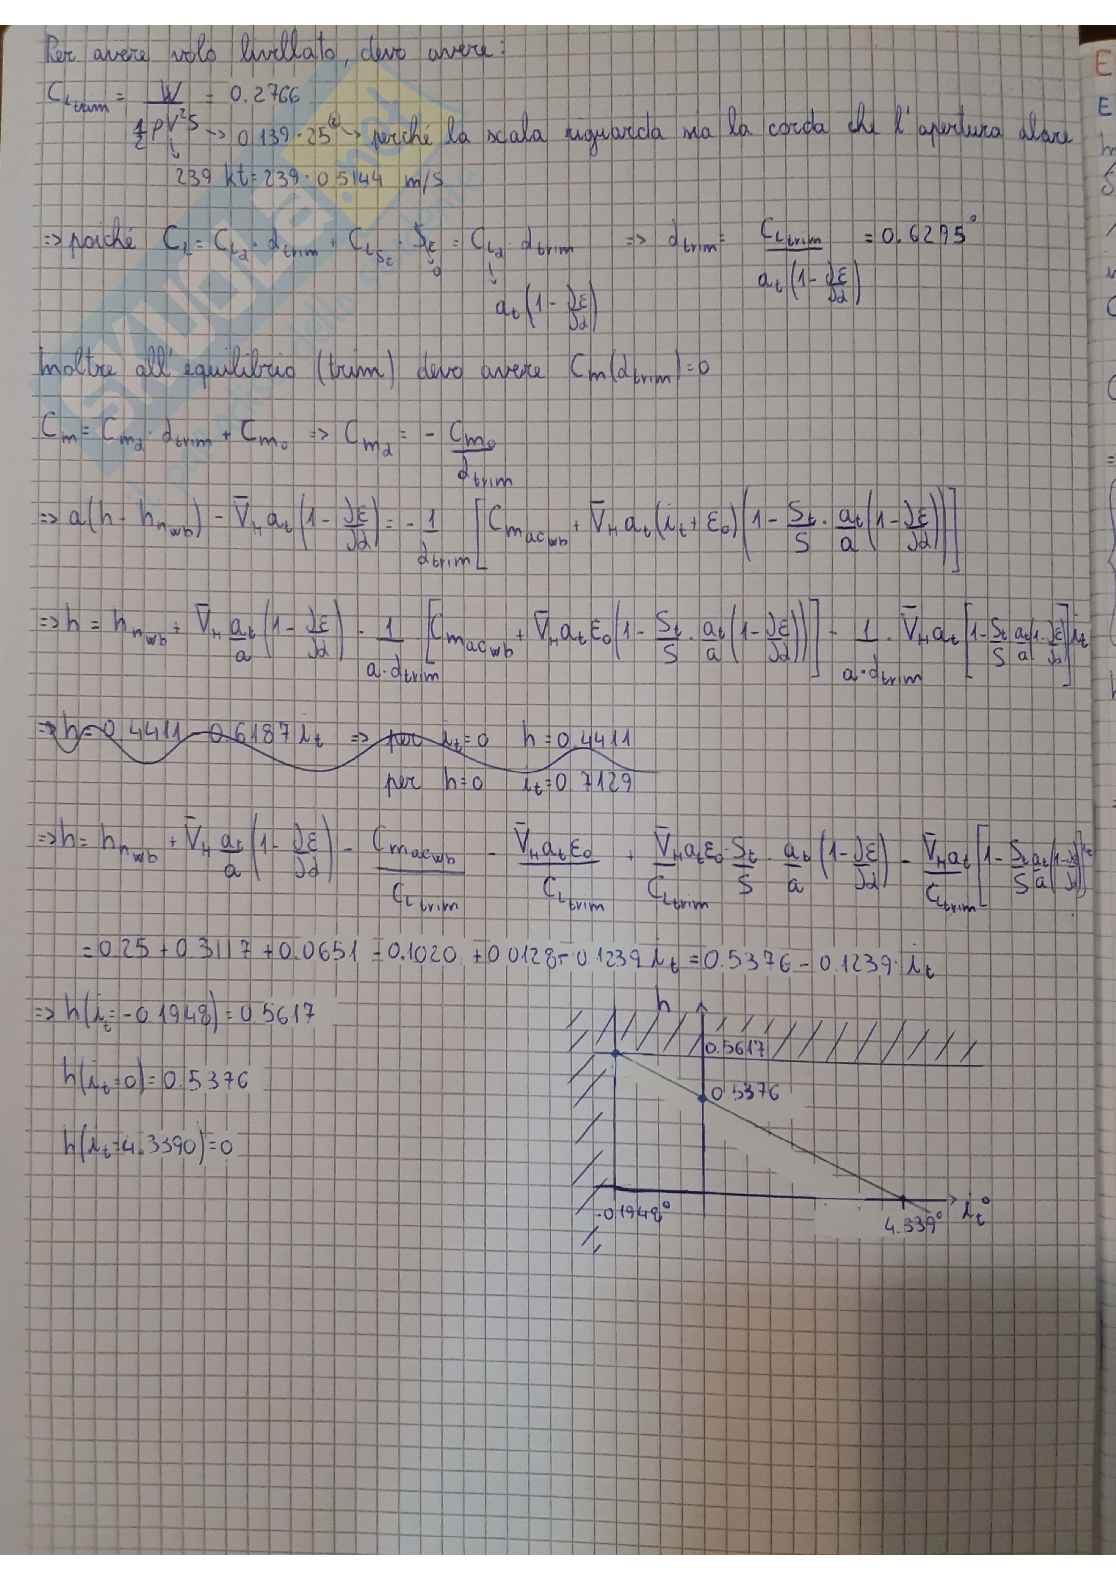 Per avere volo livellato, devo avere:
C_Ltrim = W / (½ρV²S) = 0.2766
→ 0.139·25² → perché la scala riguarda sia la corda che l'apertura alare
239 kt = 239·0.5144 m/s
=> poiché C_L = C_Lα · α_trim + C_Lδε · δε = C_Lα · α_trim => α_trim = C_Ltrim / (a_t(1 - ∂ε/∂α)) = 0.6295°
0
a_t(1 - ∂ε/∂α)
Inoltre all'equilibrio (trim) devo avere C_m(α_trim)=0
C_m = C_mα · α_trim + C_m0 => C_mα = - C_m0 / α_trim
=> a(h - h_nwb) - V̄_H a_t (1 - ∂ε/∂α) = - 1/α_trim [C_macwb + V̄_H a_t (i_t + ε_0)(1 - S_t/S · a_t/a (1 - ∂ε/∂α))]
=> h = h_nwb + V̄_H a_t/a (1 - ∂ε/∂α) - 1/(a·α_trim) [C_macwb + V̄_H a_t ε_0 (1 - S_t/S · a_t/a (1 - ∂ε/∂α))] - 1/(a·α_trim) · V̄_H a_t [1 - S_t/S a_t/a (1 - ∂ε/∂α)] i_t
=> h = 0.4411 - 0.6187 i_t => per i_t=0 h=0.4411
per h=0 i_t=0.7129
=> h = h_nwb + V̄_H a_t/a (1 - ∂ε/∂α) - C_macwb/C_Ltrim - V̄_H a_t ε_0/C_Ltrim + V̄_H a_t ε_0/C_Ltrim · S_t/S · a_t/a (1 - ∂ε/∂α) - V̄_H a_t/C_Ltrim [1 - S_t/S a_t/a (1 - ∂ε/∂α)] i_t
= 0.25 + 0.3117 + 0.0651 - 0.1020 + 0.0128 - 0.1239 i_t = 0.5376 - 0.1239· i_t
=> h(i_t=-0.1948) = 0.5617
h(i_t=0) = 0.5376
h(i_t=4.3390)=0
h
0.5617
0.5376
-0.1948°
4.339°
i_t°